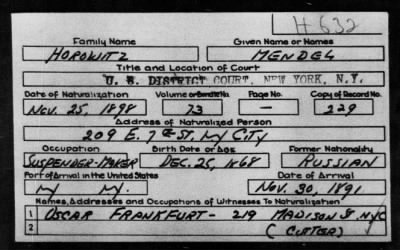 H-632
Family Name Given Name or Names
HOROWITZ MENDEL
Title and Location of Court
U. S. DISTRICT COURT, NEW YORK, N.Y.
Date of Naturalization Volume or Bundle No. Page No. Copy of Record No.
NOV. 25, 1898 73 — 229
Address of Naturalized Person
209 E. 7th ST. NY CITY
Occupation Birth Date or Age Former Nationality
SUSPENDER-MAKER DEC. 25, 1868 RUSSIAN
Port of Arrival in the United States Date of Arrival
NY NY. NOV. 30, 1891
Names, Addresses and Occupations of Witnesses To Naturalization
1 OSCAR FRANKFURT- 219 MADISON ST. NYC
2 (CUTTER)